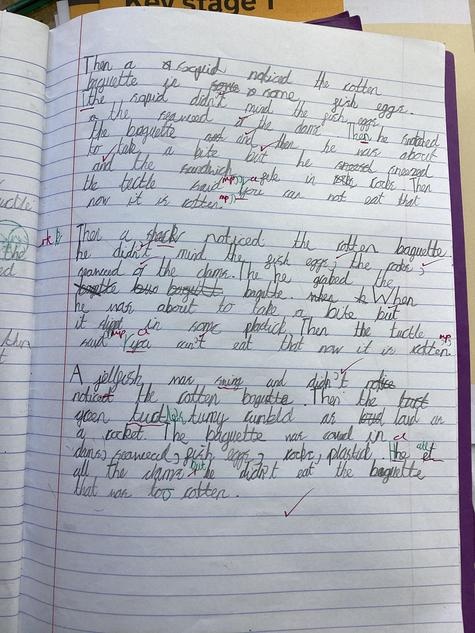 Key stage 1
Then a squid noticed the rotten
baguette in some fish eggs.
The squid didn't mind the fish eggs
or the seaweed or the clams. Then he snatched
the baguette and then he was about
to take a bite but he sneezed
and the sandwich in rocks. Then
the turtle said You can not eat that
now it is rotten.
Then a shark noticed the rotten baguette.
he didn't mind the fish eggs, the rocks
or the clams. The he grabed the
bagutte. When
he was about to take a bite but
it in some plastick. Then the turtle
said You can't eat that now it is rotten.
A jellyfish was and didn't
notice the rotten baguette. Then the
green tumy rumbld as loud as
a rocket. The baguette was coverd in
clams, seaweed, fish eggs, rocks, plastick, the
all the clams but he didn't eat the baguette
that was too rotten.